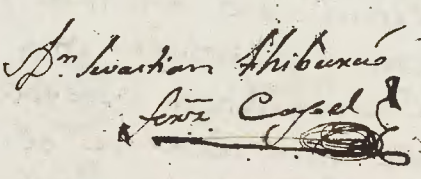 Dn Sevastian Thiburcio
fernz Capel